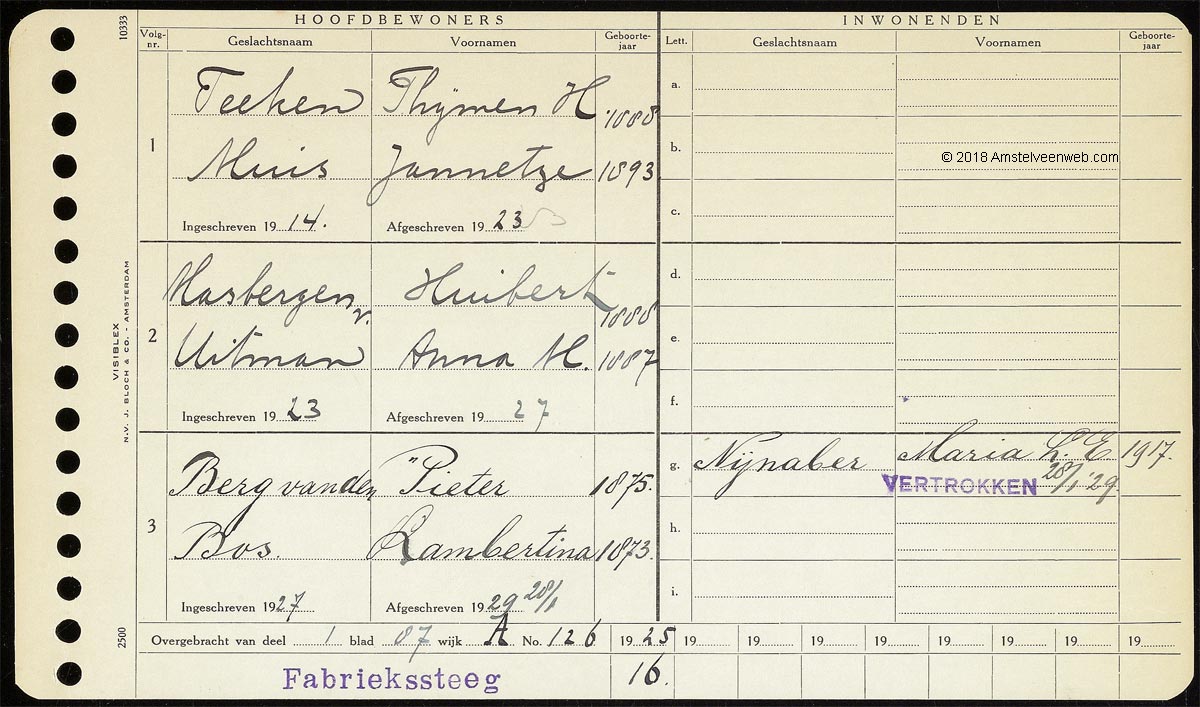 10333
HOOFDBEWONERS
INWONENDEN
Volg-nr. Geslachtsnaam Voornamen Geboorte-jaar Lett. Geslachtsnaam Voornamen Geboorte-jaar
Teeken Thijmen H 1888
1
Muis Jannetze 1893
Ingeschreven 19 14. Afgeschreven 19 23
Hasbergen v. Huibert 1888
2
Uitman Anna M. 1887
Ingeschreven 19 23 Afgeschreven 19 27
Berg van den Pieter 1875.
3
Bos. Lambertina 1873.
Ingeschreven 1927 Afgeschreven 19 29 28/1
a.
b.
© 2018 Amstelveenweb.com
c.
d.
e.
f.
g. Nijnaber Maria L. E. 1917.
VERTROKKEN 28/1 '29
h.
i.
Overgebracht van deel 1 blad 87 wijk A No. 126 19 25 19 19 19 19 19 19 19 19
Fabriekssteeg 16.
VISIBLEX
N.V. J. BLOCH & CO. - AMSTERDAM
2500